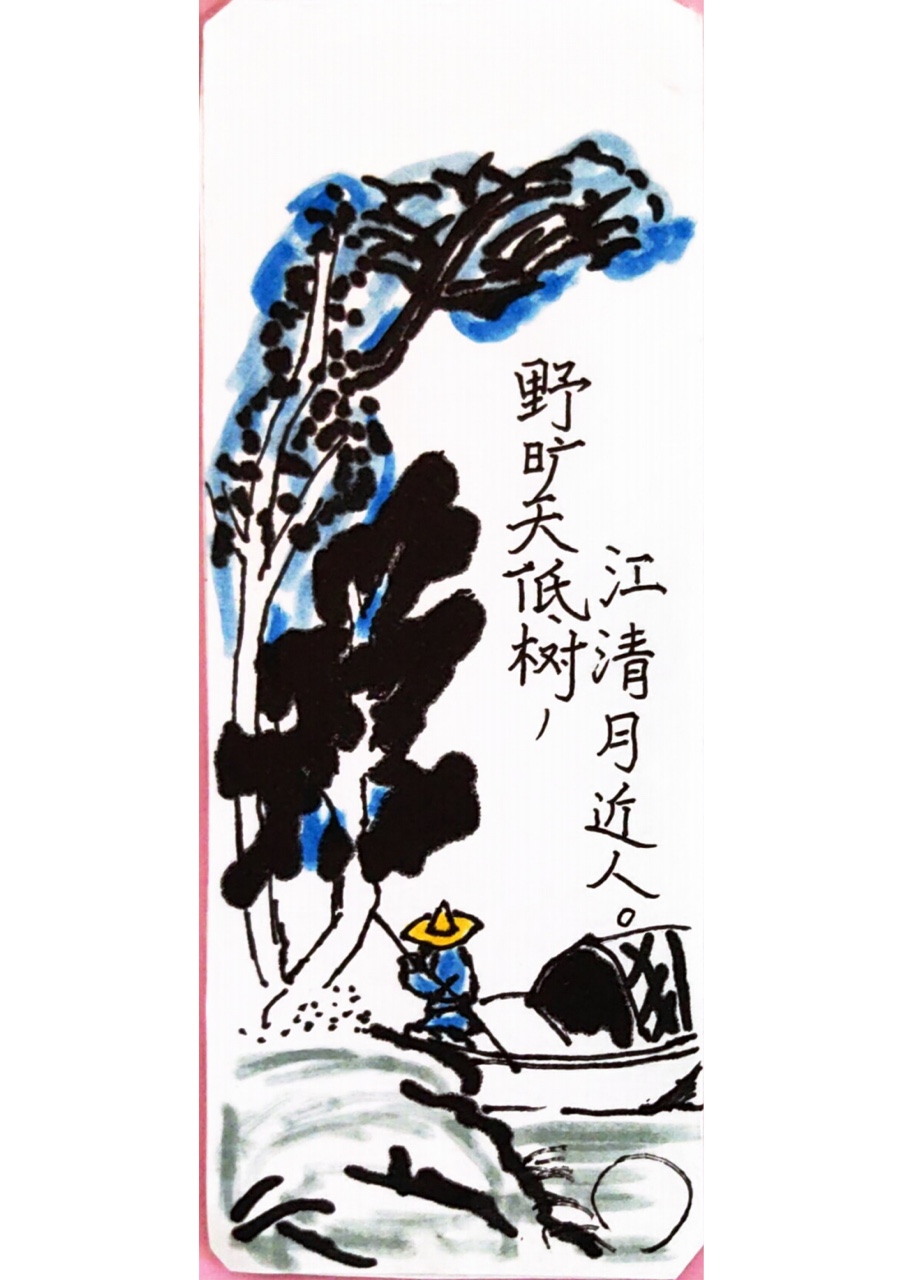 野旷天低树，
江清月近人。